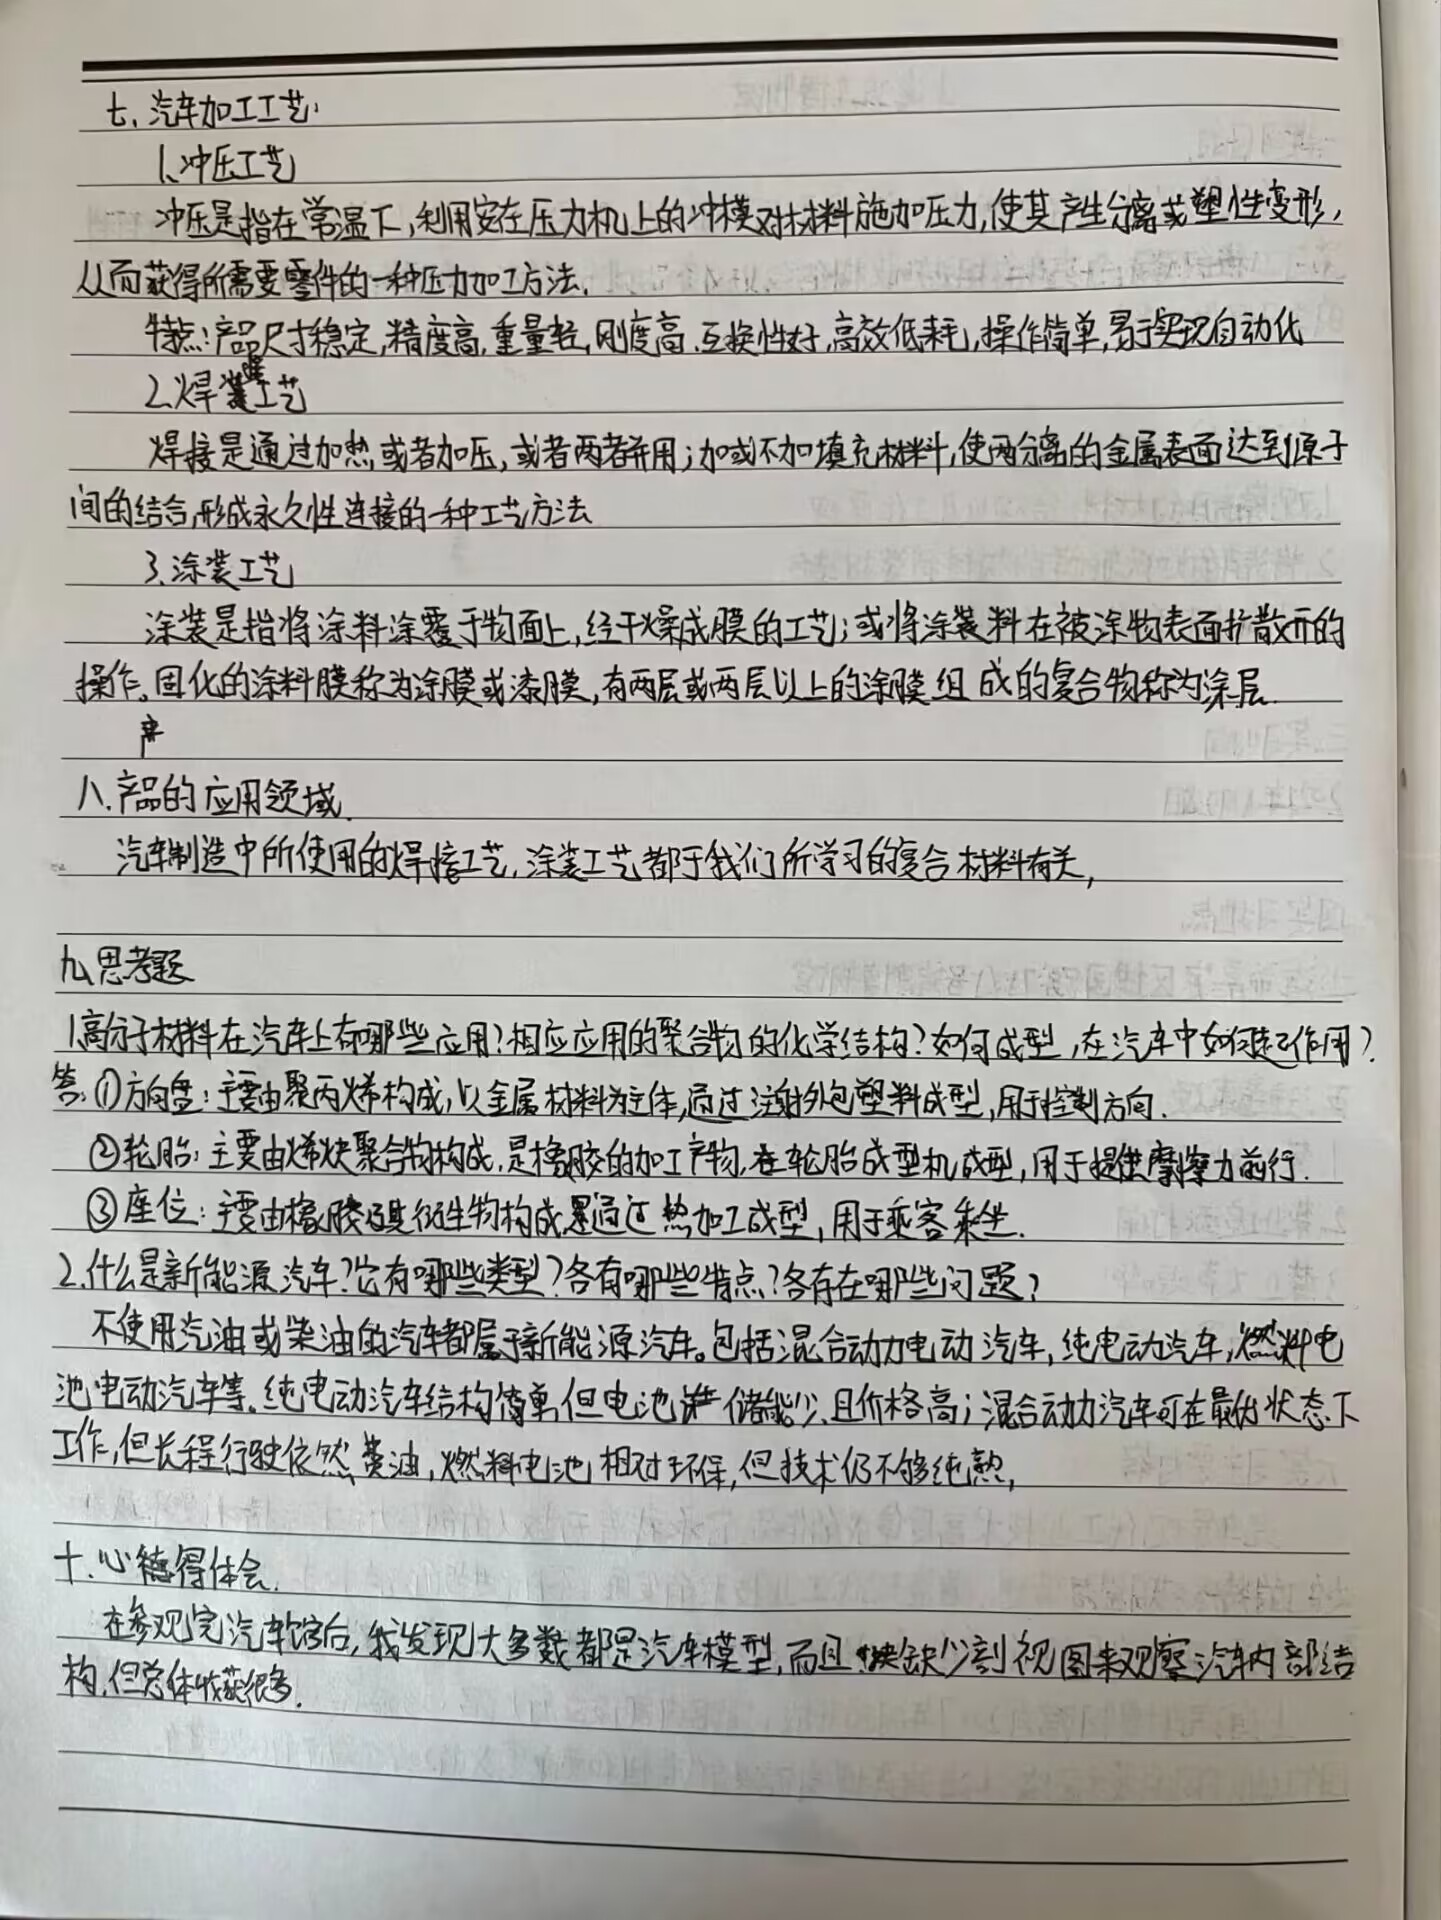 七、汽车加工工艺:
1、冲压工艺
冲压是指在常温下,利用安在压力机上的冲模对材料施加压力,使其产生分离或塑性变形,
从而获得所需要零件的一种压力加工方法.
特点:产品尺寸稳定,精度高,重量轻,刚度高,互换性好,高效低耗,操作简单,易于实现自动化
2.焊接工艺
焊接是通过加热或者加压,或者两者并用;加或不加填充材料,使两分离的金属表面达到原子
间的结合,形成永久性连接的一种工艺方法
3.涂装工艺
涂装是指将涂料涂覆于物面上,经干燥成膜的工艺;或将涂装料在被涂物表面扩散开的
操作。固化的涂料膜称为涂膜或漆膜,有两层或两层以上的涂膜组成的复合物称为涂层.
八.产品的应用领域.
汽车制造中所使用的焊接工艺,涂装工艺都于我们所学习的复合材料有关,
九、思考题
1.高分子材料在汽车上有哪些应用?相应应用的聚合物的化学结构?如何成型,在汽车中如何起作用?
答:①方向盘:主要由聚丙烯构成,以金属材料为主体,通过注射外包塑料成型,用于控制方向.
②轮胎:主要由烯炔聚合物构成,是橡胶的加工产物,在轮胎成型机成型,用于提供摩擦力前行.
③座位:主要由橡胶及其衍生物构成,是通过热加工成型,用于乘客乘坐.
2.什么是新能源汽车?它有哪些类型?各有哪些特点?各存在哪些问题?
不使用汽油或柴油的汽车都属于新能源汽车。包括混合动力电动汽车,纯电动汽车,燃料电
池电动汽车等。纯电动汽车结构简单,但电池储能少,且价格高;混合动力汽车可在最优状态下
工作,但长程行驶依然费油,燃料电池相对环保,但技术仍不够纯熟,
十.心得体会.
在参观完汽车馆后,我发现大多数都是汽车模型,而且缺少剖视图来观察汽车内部结
构,但总体收获很多.